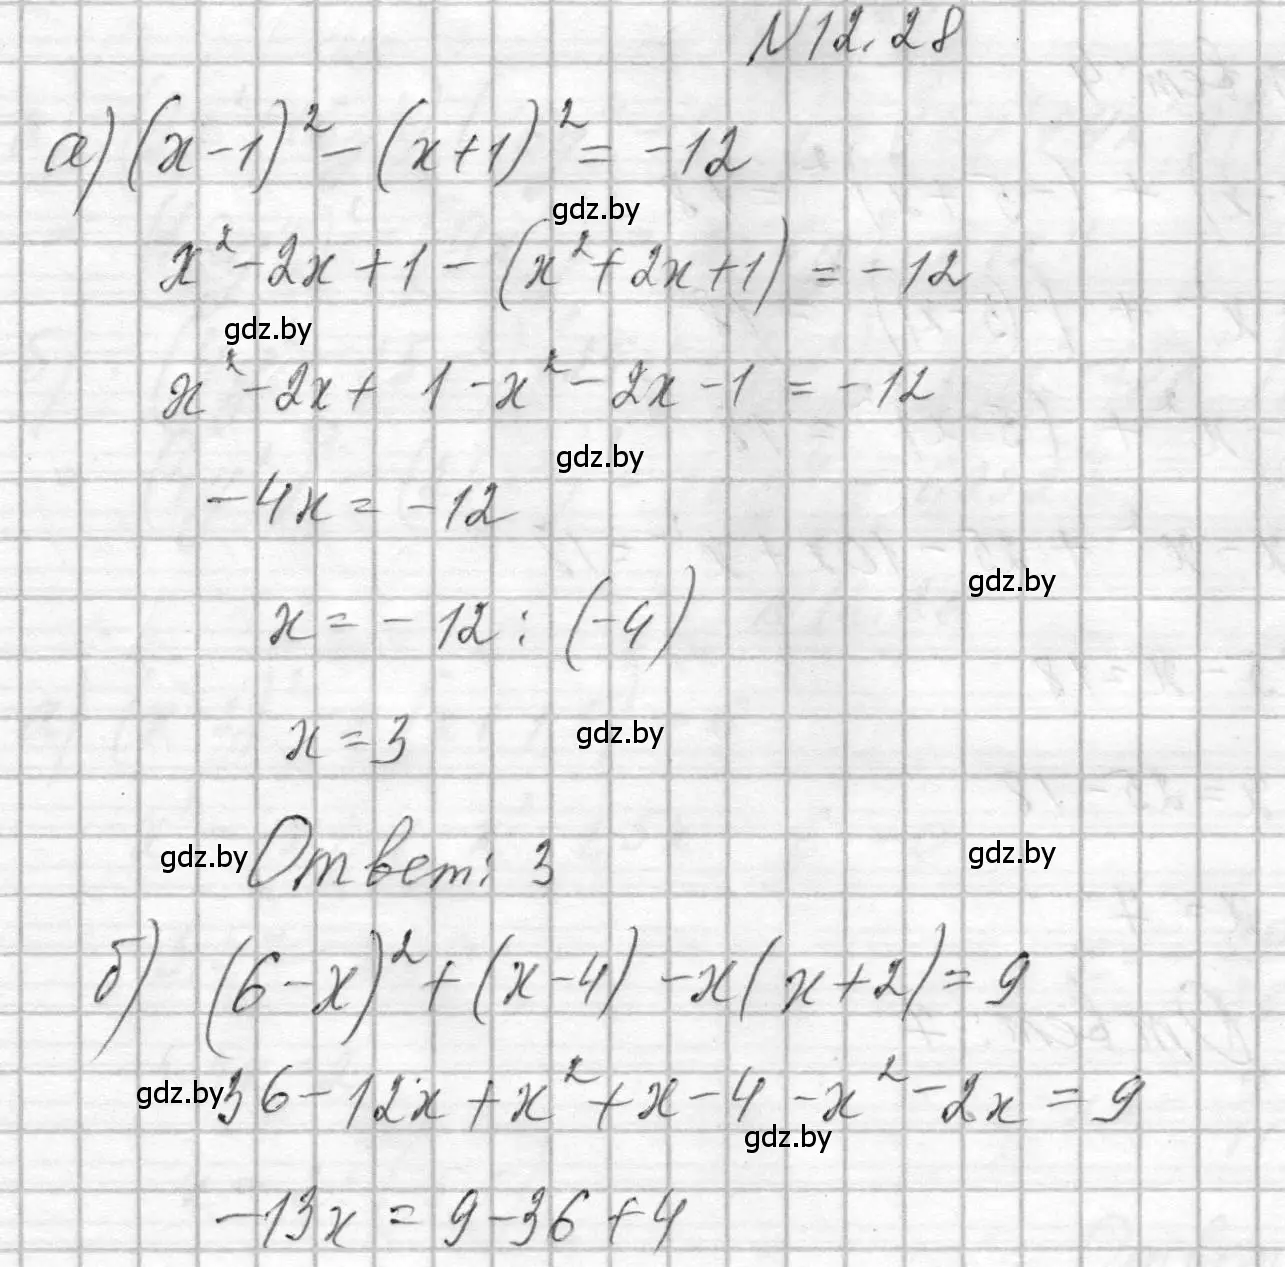 N12.28
а) (x-1)² - (x+1)² = -12
gdz.by
x² - 2x + 1 - (x² + 2x + 1) = -12
gdz.by
x² - 2x + 1 - x² - 2x - 1 = -12
gdz.by
-4x = -12
gdz.by
x = -12 : (-4)
x = 3 gdz.by
gdz.by Ответ: 3 gdz.by
б) (6-x)² + (x-4) - x(x+2) = 9
gdz.by 36 - 12x + x² + x - 4 - x² - 2x = 9
gdz.by
-13x = 9 - 36 + 4